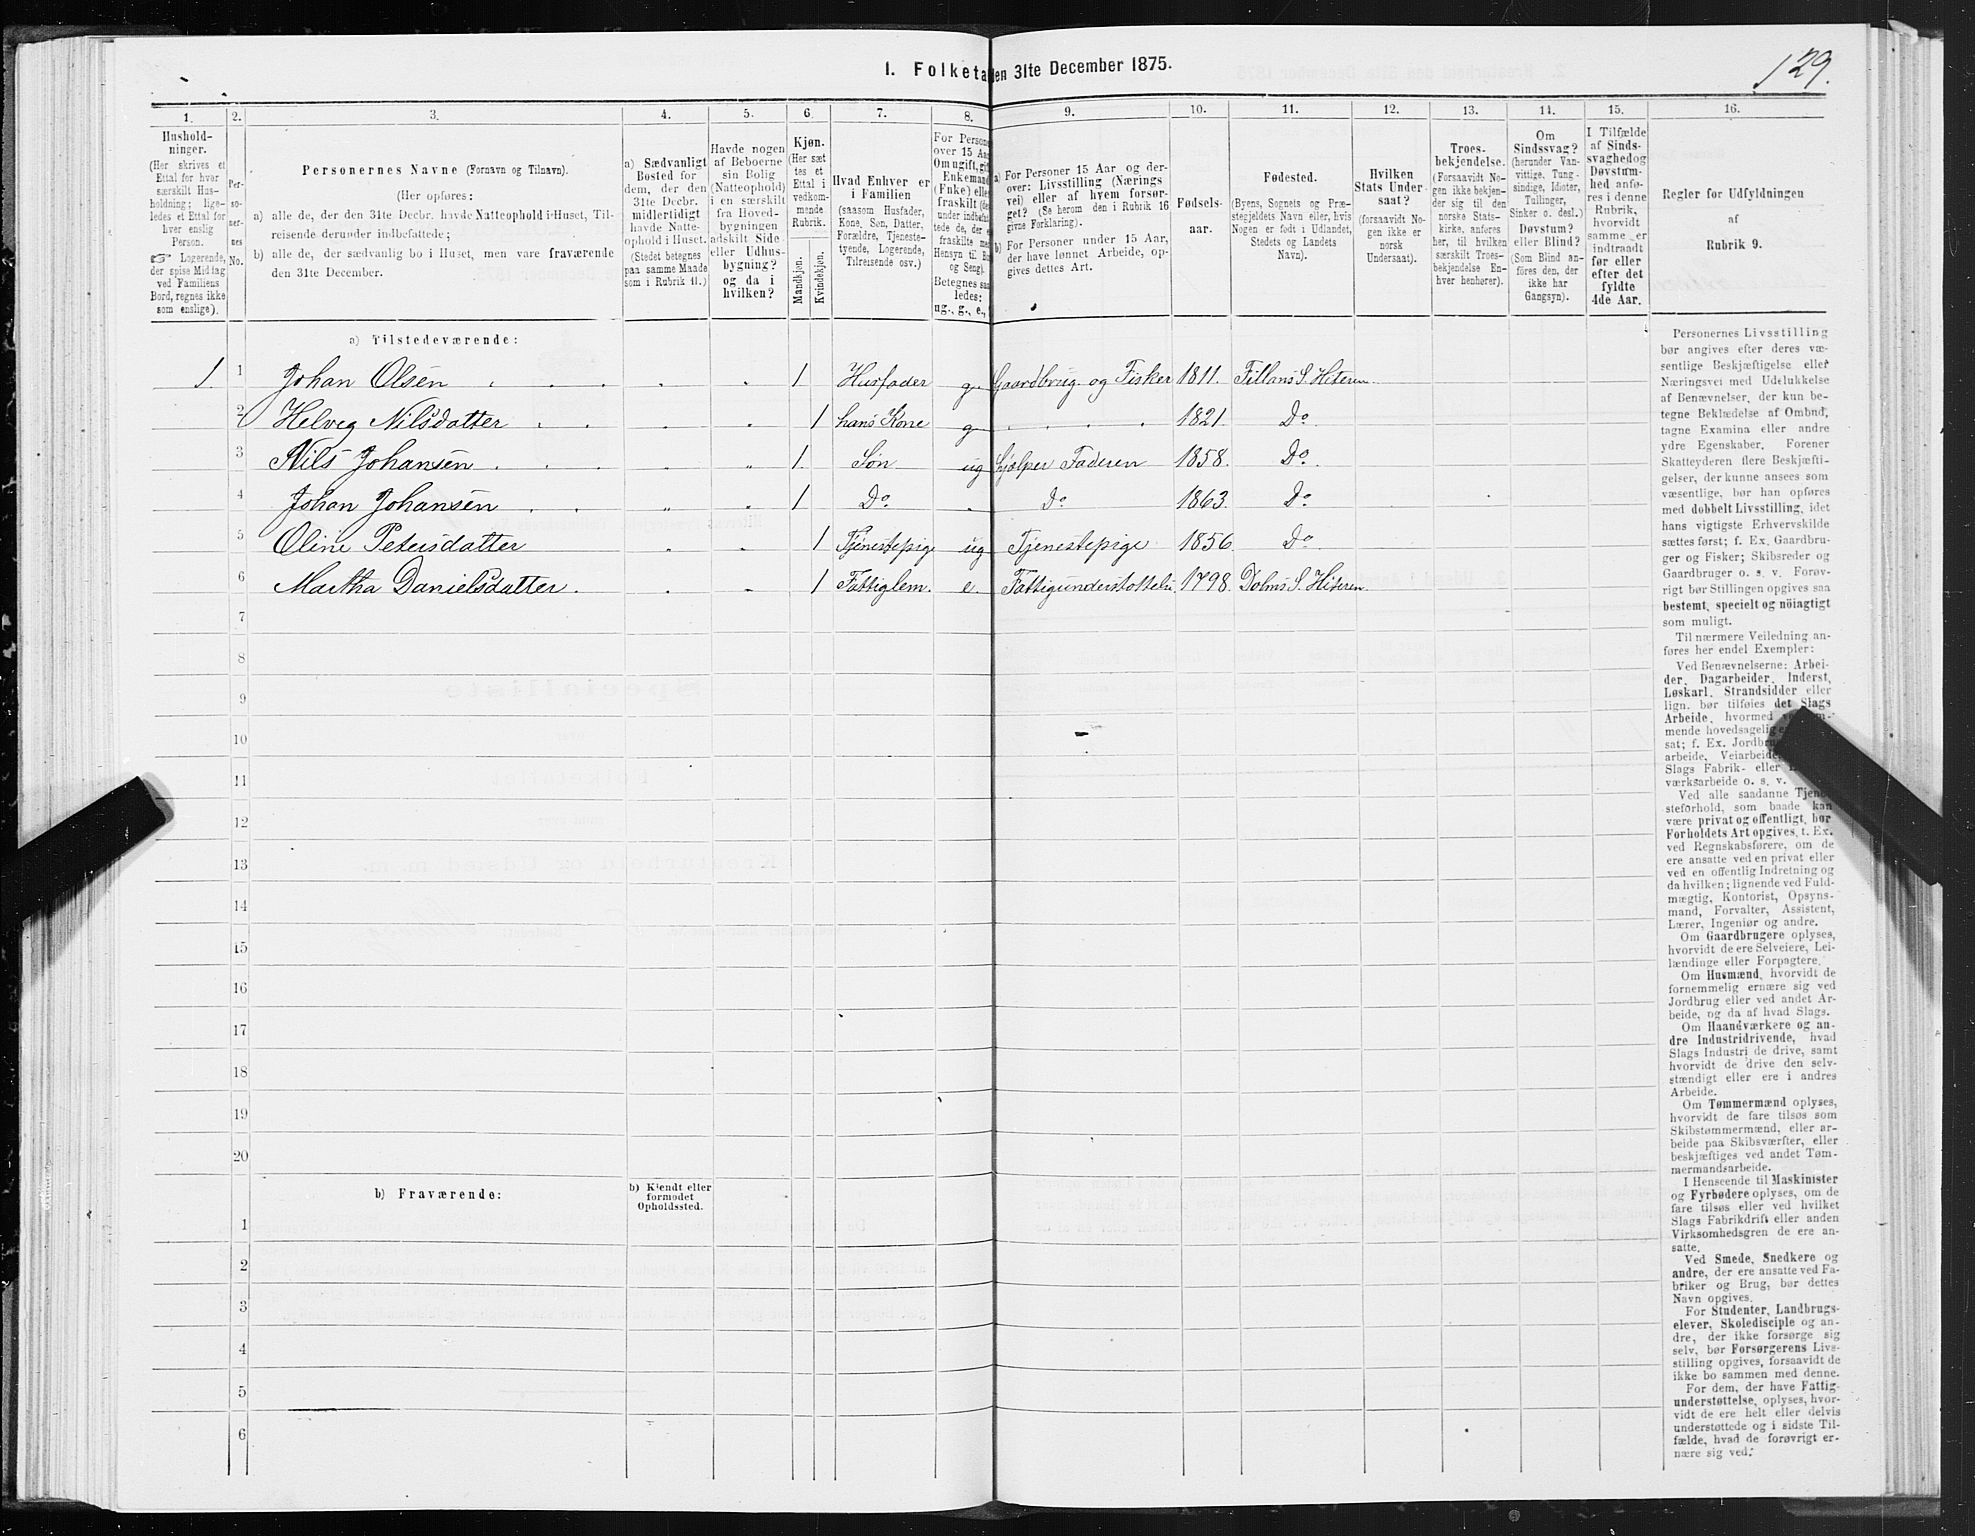 129.
1. Folketa
den 31te December 1875.
1. 2. 3. 4. 5. 6. 7. 8. 9. 10. 11. 12. 13. 14. 15. 16.
Hushold-
ninger.
(Her skrives et
Ettal for hver
særskilt Hus-
holdning; lige-
ledes et Ettal for
hver enslig
Person.
☞ Logerende,
der spise Middag
ved Familiens
Bord, regnes ikke
som enslige).
Per-
so-
ner-
nes
No.
Personernes Navne (Fornavn og Tilnavn).
(Her opføres:
a) alle de, der den 31te Decbr. havde Natteophold i Huset, Til-
reisende derunder indbefattede;
b) alle de, der sædvanlig bo i Huset, men vare fraværende
den 31te December.
a) Sædvanligt
Bosted for
dem, der den
31te Decbr.
midlertidigt
havde Natte-
ophold i Huset.
(Stedet betegnes
paa samme Maade
som i Rubrik 11.)
Havde nogen
af Beboerne
sin Bolig
(Natteophold)
i en særskilt
fra Hoved-
bygningen
adskilt Side-
eller Udhus-
bygning?
og da i
hvilken?
Kjøn.
(Her sæt-
tes et
Ettal i
vedkom-
mende
Rubrik.
Mandkjøn.
Kvindekjøn.
Hvad Enhver er
i Familien
(saasom Husfader,
Kone, Søn, Datter,
Forældre, Tjeneste-
tyende, Logerende,
Tilreisende osv.)
For Person
over 15 Aa
Om ugift, gif
Enkemand
(Enke) elle
fraskilt (de
under indbefat
tede de, de
fraskilte me
Hensyn til Bo
og Seng).
Betegnes saa
ledes:
ug., g., e.,
a) For Personer 15 Aar og der-
over: Livsstilling (Nærings
vei) eller af hvem forsør-
get? (Se herom den i Rubrik 16
givne Forklaring).
b) For Personer under 15 Aar,
der have lønnet Arbeide, op-
gives dettes Art.
Fødsels-
aar.
Fødested.
(Byens, Sognets og Præ-
stegjeldets Navn eller, hvis
Nogen er født i Udlandet,
Stedets og Landets
Navn).
Hvilken
Stats Under-
saat?
(forsaavidt No-
gen ikke er
norsk
Undersaat).
Troes-
bekjendelse.
(Forsaavidt No-
gen ikke bekjen-
der sig til den
norske Stats-
kirke, anføres
her, til hvilken
særskilt Troes-
bekjendelse En-
hver henhører).
Om
Sindssvag?
(herunder Van-
vittige, Tung-
sindige, Idioter,
Tullinger,
Sinker o. desl.)
Døvstum?
eller Blind?
(Som Blind an-
føres den, der
ikke har
Gangsyn).
I Tilfælde
af Sinds-
svaghed og
Døvstum-
hed anfø-
res i denne
Rubrik,
hvorvidt
samme er
indtraadt
før eller
efter det
fyldte
4de Aar.
Regler for Udfyldningen
af
Rubrik 9.
a) Tilstedeværende:
1. 1 Johan Olsen 1 Husfader g. Gaardbrug. og Fisker 1811. Fillans S. Hiteren.
2 Helveg Nilsdatter 1 hans Kone g. 1821. Do
3 Nils Johansen 1. Søn ug Hjælper Faderen 1858. Do
4 Johan Johansen 1 Do Do 1863. Do
5 Oline Petersdatter 1 Tjenestepige ug Tjenestepige 1856. Do
6 Martha Danielsdatter. 1 Fattiglem. e. Fattigunderstøttelse. 1798. Dolms S. Hiteren.
7
8
9
10
11
12
13
14
15
16
17
18
19
20
b) Fraværende:
b) Kjendt eller
formodet
Opholdssted.
1
2
3
4
5
6
Personernes Livsstilling
bør angives efter deres væ-
sentlige Beskjæftigelse eller
Næringsvei med Udelukkelse
af Benævnelser, der kun be-
tegne Beklædelse af Ombud,
tagne Examina eller andre
ydre Egenskaber. Forener
Skatteyderen flere Beskjæfti-
gelser, der kunne ansees som
væsentlige, bør han opføres
med dobbelt Livsstilling, idet
hans vigtigste Erhvervskilde
sættes først; f. Ex. Gaardbru-
ger og Fisker; Skibsreder og
Gaardbruger o. s. v. Forøv-
rigt bør Stillingen opgives saa
bestemt, specielt og nöiagtigt
som muligt.
Til nærmere Veiledning an-
føres her endel Exempler:
Ved Benævnelserne: Arbei-
der, Dagarbeider, Inderst,
Løskarl, Strandsidder eller
lign. bør tilføies det Slags
Arbeide, hvormed
mende hovedsagelig
sat; f. Ex. Jordbr
arbeide, Veiarbeide
Slags Fabrik- eller
værksarbeide o. s. v.
Ved alle saadanne Tjene
steforhold, som baade kan
være privat og offentligt, bør
Forholdets Art opgives, t. Ex.
ved Regnskabsførere, om de
ere ansatte ved en privat eller
ved en offentlig Indretning og
da hvilken; lignende ved Fuld-
mægtig, Kontorist, Opsyns-
mand, Forvalter, Assistent,
Lærer, Ingeniør og andre.
Om Gaardbrugere oplyses,
hvorvidt de ere Selveiere, Lei-
lændinge eller Forpagtere.
Om Husmænd, hvorvidt de
fornemmelig ernære sig ved
Jordbrug eller ved andet Ar-
beide, og da af hvad Slags.
Om Haandværkere og an-
dre Industridrivende, hvad
Slags Industri de drive, samt
hvorvidt de drive den selv-
stændigt eller ere i andres
Arbeide.
Om Tømmermænd oplyses,
hvorvidt de fare tilsøs som
Skibstømmermænd, eller ar-
beide paa Skibsværfter, eller
beskjæftiges ved andet Tøm-
mermandsarbeide.
I Henseende til Maskinister
og Fyrbødere oplyses, om de
fare tilsøs eller ved hvilket
Slags Fabrikdrift eller anden
Virksomhedsgren de ere an-
satte.
Ved Smede, Snedkere og
andre, der ere ansatte ved Fa-
briker og Brug, bør dettes
Navn opgives.
For Studenter, Landbrugs-
elever, Skoledisciple og an-
dre, der ikke forsørge sig
selv, bør Forsørgerens Livs-
stilling opgives, forsaavidt de
ikke bo sammen med denne.
For dem, der have Fattig-
understøttelse, oplyses, hvor-
vidt de ere helt eller delvis
understøttede og i sidste Til-
fælde, hvad de forøvrigt er-
nære sig ved.